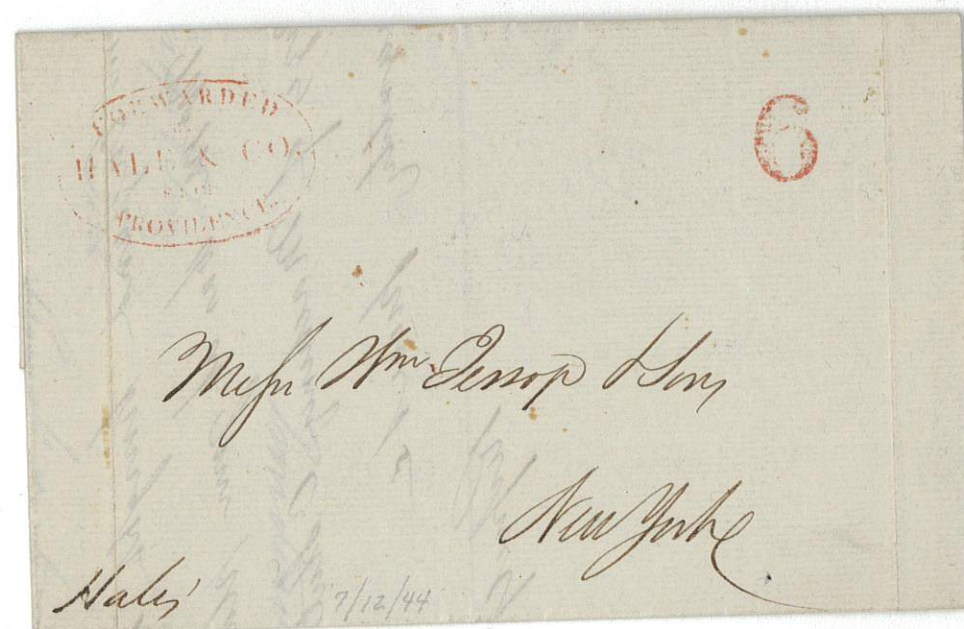 FORWARDED
HALE & CO.
FROM
PROVIDENCE.
6
Messrs Wm. Jessop & Sons
New York
Hales
7/12/44